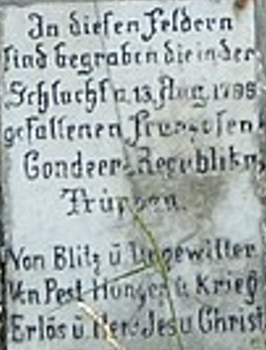 In diesen Feldern
sind begraben die in der
Schlacht a. 13. Aug. 1796
gefallenen Franzosen
Condeer- Republikn.
Truppen.
Von Blitz ü Ungewitter
Von Pest Hunger ü Krieg
Erlös ü Herr Jesu Christ